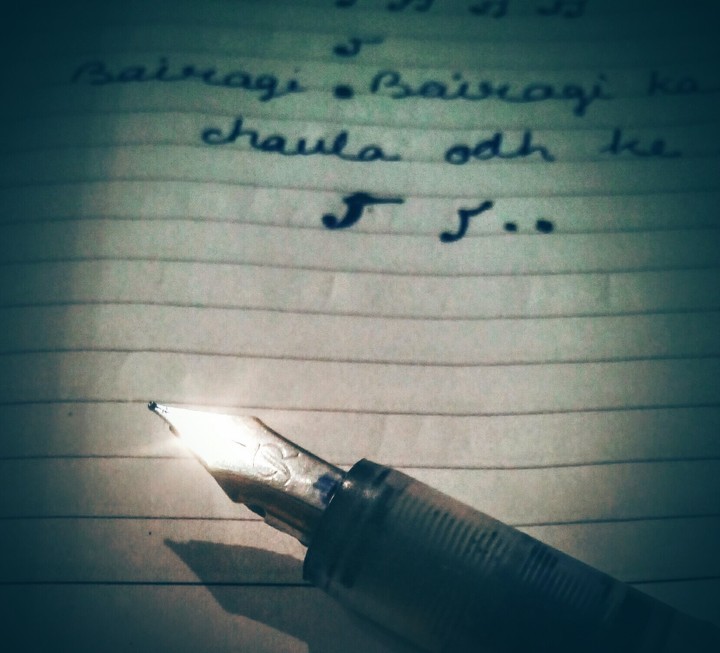 5
Bairagi . Bairagi ka
chaula odh ke
5 5..